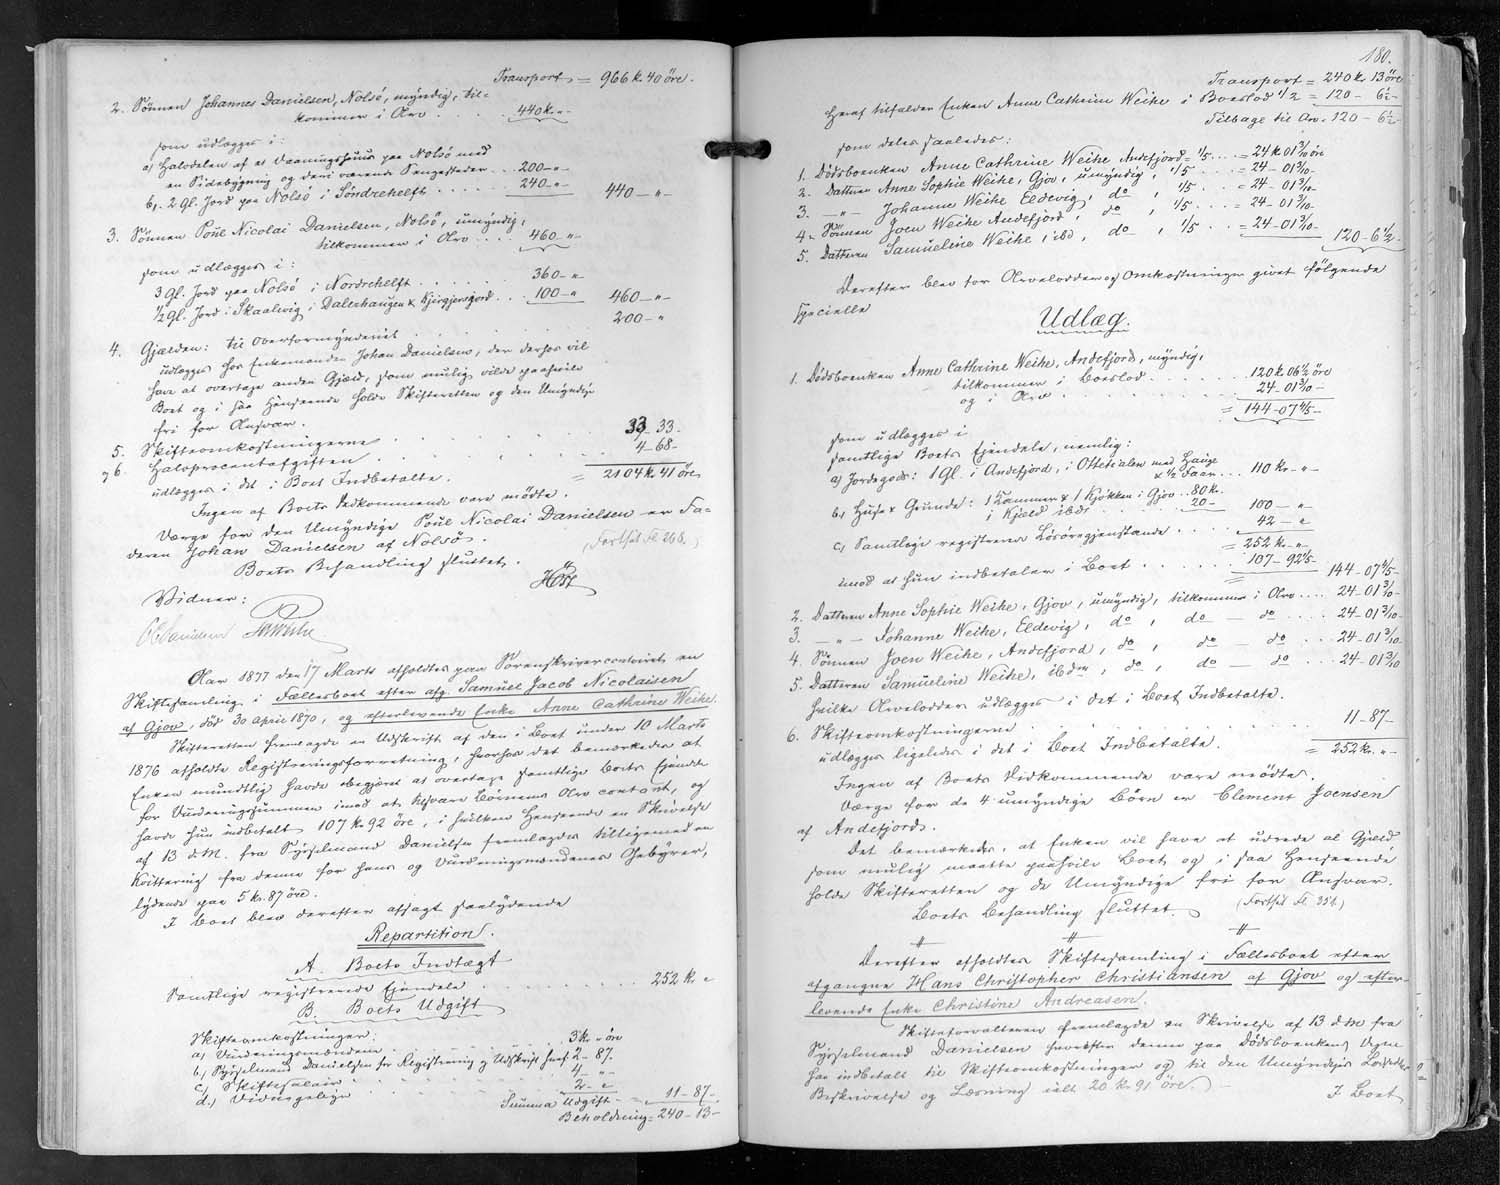 Transport = 966 k. 40 öre.
2. Sönnen Johannes Danielsen, Nolsö, myndig, til-
kommer i Arv . . . . 440 k. "
som udlægges i:
a) Halvdelen af et Vaaningshuus paa Nolsö med
en Sidebygning og deri værende Sengesteder . . 200 - "
b, 2 Gl. Jord paa Nolsö i Söndrehelft . . . 240 - " 440 - "
3. Sönnen Poul Nicolai Danielsen, Nolsö, umyndig,
tilkommer i Arv . . . 460 - "
som udlægges i:
3 Gl. Jord paa Nolsö i Nordrehelft . . . . 360 - "
1/2 Gl. Jord i Skaalevig i Dalerhaugen & . . . 100 - " 460 - "
4. Gjælden: til Overformynderiet . . . . 200 - "
udlægges hos Enkemanden Johan Danielsen, der derhos vil
have at overtage anden Gjæld, som mulig vilde paahvile
Boet og i saa Henseende holde Skifteretten og den Umyndige
fri for Ansvar.
5. Skifteomkostningerne . . . . 33 - 33 -
og 6. Halvprocentafgiften . . . . 4 - 68 -
udlægges i det i Boet Indbetalte. = 2104 k. 41 öre
Ingen af Boets Vedkommende vare mödte.
Værge for den Umyndige Poul Nicolai Danielsen er Fa-
deren Johan Danielsen af Nolsö.
(Fortsat Fl. 268.)
Boets Behandling sluttet.
Höst
Vidner:
Danielsen
Aar 1877 den 17 Marts afholdtes paa Sorenskrivercontoiret en
Skiftesamling i Fællesboet efter afg. Samuel Jacob Nicolaisen
af Gjov, död 30 April 1870, og efterlevende Enke Anne Cathrine Weihe.
Skifteretten fremlagde en Udskrift af den i Boet under 10 Marts
1876 afholdte Registreringsforretning, hvorhos det bemærkedes at
Enken mundtlig havde begjæret at overtage samtlige Boets Ejendele
for Vurderingssummen imod at udsvare Börnenes Arv contant, og
havde hun indbetalt 107 k. 92 öre, i hvilken Henseende en Skrivelse
af 13 d.M. fra Sysselmand Danielsen fremlagdes tilligemed en
Kvittering fra denne for hans og Vurderingsmændenes Gebyrer,
lydende paa 5 k. 87 öre.
I Boet blev derefter afsagt saalydende
Repartition.
A. Boets Indtægt
Samtlige registrerede Ejendele . . . . 252 k. "
B. Boets Udgift
Skifteomkostninger:
a) Vurderingsmændene . . . . 3 k. " öre
b, Sysselmand Danielsen for Registrering og Udskrift heraf 2 - 87.
c, Skiftesalair . . . . 4 - " -
d.) Vidnegelige . . . . 2 - "
Summa Udgift = 11 - 87 -
Beholdning = 240 - 13 -
180.
Transport = 240 k. 13 öre
Heraf tilfalder Enken Anne Cathrine Weihe i Boeslod 1/2 = 120 - 6 1/2 -
Tilbage til Arv. 120 - 6 1/2 -
som deles saaledes:
1. Dödsboenken Anne Cathrine Weihe Andefjord = 1/5 . . . = 24 k. 01 3/10 öre
2. Datteren Anne Sophie Weihe, Gjov, umyndig, 1/5 . . . = 24 - 01 3/10 -
3. - " - Johanne Weihe Eldevig, do , 1/5 . . . = 24 - 01 3/10 -
4. Sönnen Joen Weihe Andefjord, do , 1/5 . . . = 24 - 01 3/10 -
5. Datteren Samueline Weihe, ibd, do , 1/5 . . = 24 - 01 3/10 - 120 - 6 1/2 -
Derefter blev for Arvelodder og Omkostninger givet fölgende
specielle
Udlæg.
1. Dödsboenken Anne Cathrine Weihe, Andefjord, myndig,
tilkommer i Boeslod . . . . 120 k. 06 1/2 öre
og i Arv . . . . 24 - 01 3/10 -
= 144 - 07 4/5 -
som udlægges i
samtlige Boets Ejendele, nemlig:
a) Jordegods: 1 Gl. i Andefjord, i Ottetialen med Hauge
& 1/2 Faar . . . 110 kr. - "
b, Huse & Grunde: 1 Kammer & 1 Kjökken i Gjov . . 80 k.
i Kjeld ibdt . . . . 20 - 100 - "
c, Samtlige registrerede Lösöregjenstande . . . 42 - "
= 252 k. - "
imod at hun indbetaler i Boet . . . . 107 - 92 1/5 - 144 - 07 4/5 -
2. Datteren Anne Sophie Weihe, Gjov, umyndig, tilkommer i Arv . . . 24 - 01 3/10 -
3. - " - Johanne Weihe, Eldevig, do , do - do . . . 24 - 01 3/10 -
4. Sönnen Joen Weihe, Andefjord, do , do - do . . . 24 - 01 3/10 -
5. Datteren Samueline Weihe, ibdm, do , do - do . . . 24 - 01 3/10
hvilke Arvelodder udlægges i det i Boet Indbetalte.
6. Skifteomkostningerne . . . . 11 - 87 -
udlægges ligeledes i det i Boet Indbetalte. = 252 kr. " -
Ingen af Boets Vedkommende vare mödte.
Værge for de 4 umyndige Börn er Clement Joensen
af Andefjord.
Det bemærkedes, at Enken vil have at udrede al Gjæld
som mulig maatte paahvile Boet og i saa Henseende
holde Skifteretten og de Umyndige fri for Ansvar.
Boets Behandling sluttet. (Fortsat Fl. 351.)
Derefter afholdtes Skiftesamling i Fællesboet efter
afgangne Hans Christopher Christiansen af Gjov og efter-
levende Enke Christine Andreasen.
Skifteforvalteren fremlagde en Skrivelse af 13 d.M. fra
Sysselmand Danielsen hvorefter denne paa Dödsboenkens Vegne
har indbetalt til Skifteomkostninger og til den Umyndiges
Beskrivelse og Læsning ialt 20 kr. 91 öre.
I Boet